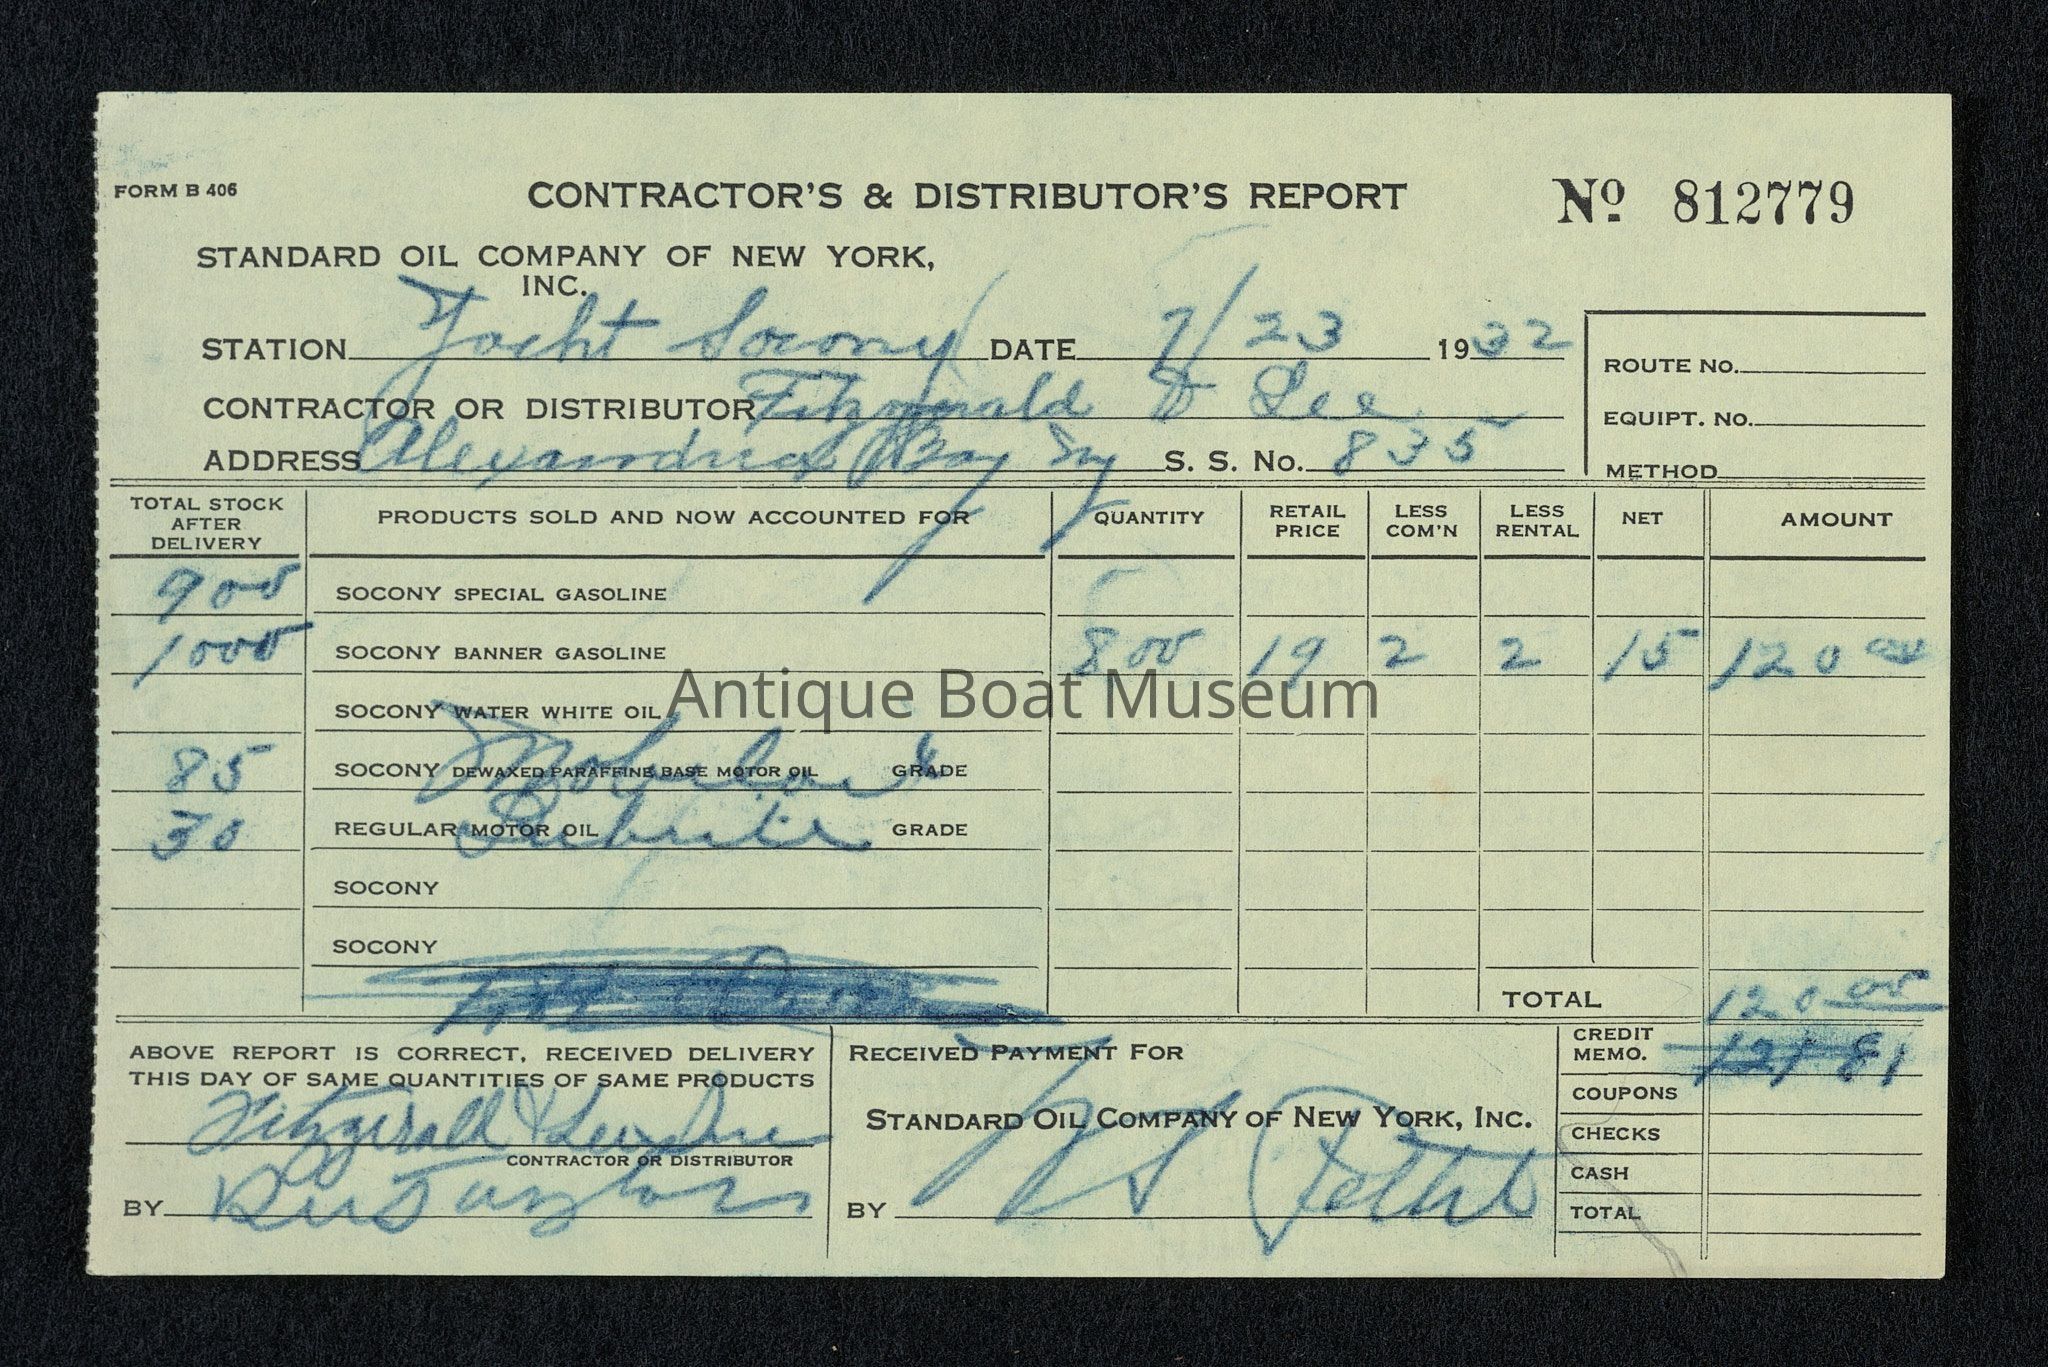 FORM B 406
CONTRACTOR'S & DISTRIBUTOR'S REPORT
No 812779
STANDARD OIL COMPANY OF NEW YORK,
INC.
STATION Yacht Socony DATE 7/23 1932
ROUTE NO.
CONTRACTOR OR DISTRIBUTOR Fitzgerald & Lee
EQUIPT. NO.
ADDRESS Alexandria Bay Ny S. S. No. 835
METHOD
TOTAL STOCK AFTER DELIVERY PRODUCTS SOLD AND NOW ACCOUNTED FOR QUANTITY RETAIL PRICE LESS COM'N LESS RENTAL NET AMOUNT
900 SOCONY SPECIAL GASOLINE
1000 SOCONY BANNER GASOLINE 800 19 2 2 15 120 00
SOCONY WATER WHITE OIL
Antique Boat Museum
85 SOCONY DEWAXED PARAFFINE BASE MOTOR OIL Mobiloil GRADE
30 REGULAR MOTOR OIL GRADE
SOCONY
SOCONY
TOTAL 120 00
CREDIT MEMO. 121 81
ABOVE REPORT IS CORRECT, RECEIVED DELIVERY
THIS DAY OF SAME QUANTITIES OF SAME PRODUCTS
Fitzgerald & Lee
CONTRACTOR OR DISTRIBUTOR
BY
RECEIVED PAYMENT FOR
STANDARD OIL COMPANY OF NEW YORK, INC.
BY
COUPONS
CHECKS
CASH
TOTAL